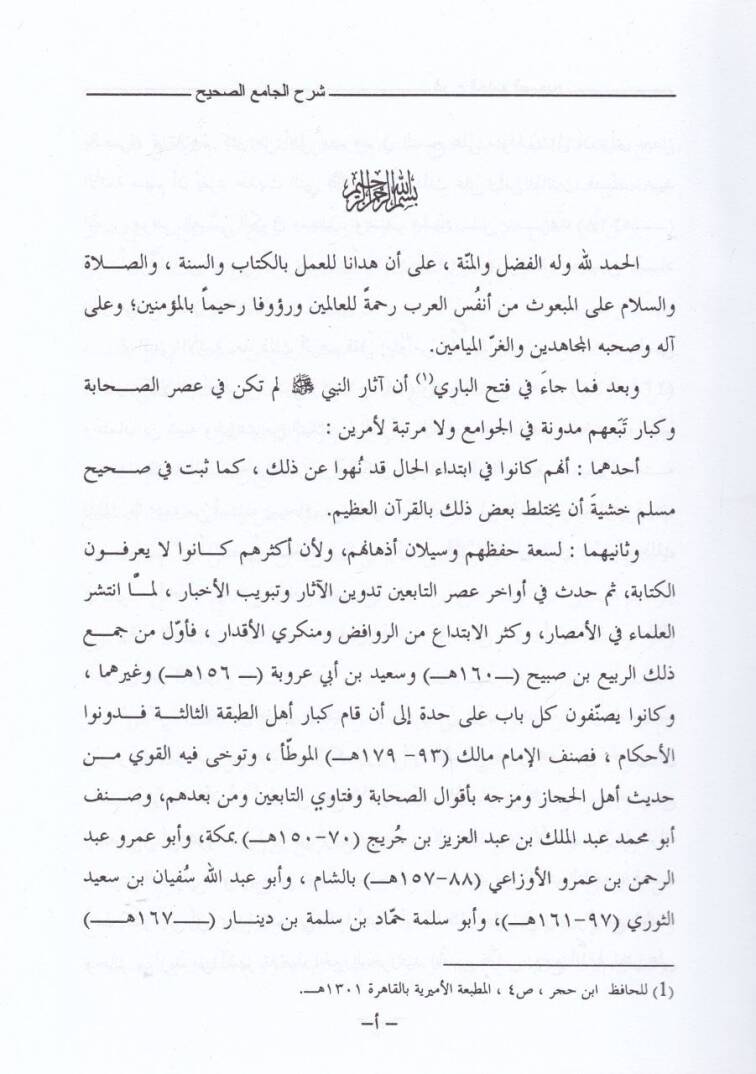 شرح الجامع الصحيح
بسم الله الرحمن الرحيم
الحمد لله وله الفضل والمنّة ، على أن هدانا للعمل بالكتاب والسنة ، والصلاة
والسلام على المبعوث من أنفُس العرب رحمةً للعالمين ورؤوفا رحيماً بالمؤمنين؛ وعلى
آله وصحبه المجاهدين والغرّ الميامين.
وبعد فما جاءَ في فتح الباري(١) أن آثار النبي ﷺ لم تكن في عصر الصحابة
وكبار تَبَعهم مدونة في الجوامع ولا مرتبة لأمرين :
أحدهما : أنهم كانوا في ابتداء الحال قد نُهوا عن ذلك ، كما ثبت في صحيح
مسلم خشيةَ أن يختلط بعض ذلك بالقرآن العظيم.
وثانيهما : لسعة حفظهم وسيلان أذهانهم، ولأن أكثرهم كانوا لا يعرفون
الكتابة، ثم حدث في أواخر عصر التابعين تدوين الآثار وتبويب الأخبار ، لمـّا انتشر
العلماء في الأمصار، وكثر الابتداع من الروافض ومنكري الأقدار ، فأوّل من جمع
ذلك الربيع بن صبيح (ــ١٦٠هــ) وسعيد بن أبي عروبة (ــ ١٥٦هــ) وغيرهما ،
وكانوا يصنّفون كل باب على حدة إلى أن قام كبار أهل الطبقة الثالثة فدونوا
الأحكام ، فصنف الإمام مالك (٩٣- ١٧٩هــ) الموطّأ ، وتوخى فيه القوي من
حديث أهل الحجاز ومزجه بأقوال الصحابة وفتاوي التابعين ومن بعدهم، وصنف
أبو محمد عبد الملك بن عبد العزيز بن جُريج (٧٠-١٥٠هــ) بمكة، وأبو عمرو عبد
الرحمن بن عمرو الأوزاعي (٨٨-١٥٧هــ) بالشام ، وأبو عبد الله سُفيان بن سعيد
الثوري (٩٧-١٦١هــ)، وأبو سلمة حمّاد بن سلمة بن دينار (ــ١٦٧هــ)
(1) للحافظ ابن حجر ، ص٤ ، المطبعة الأميرية بالقاهرة ١٣٠١هــ.
– أ–